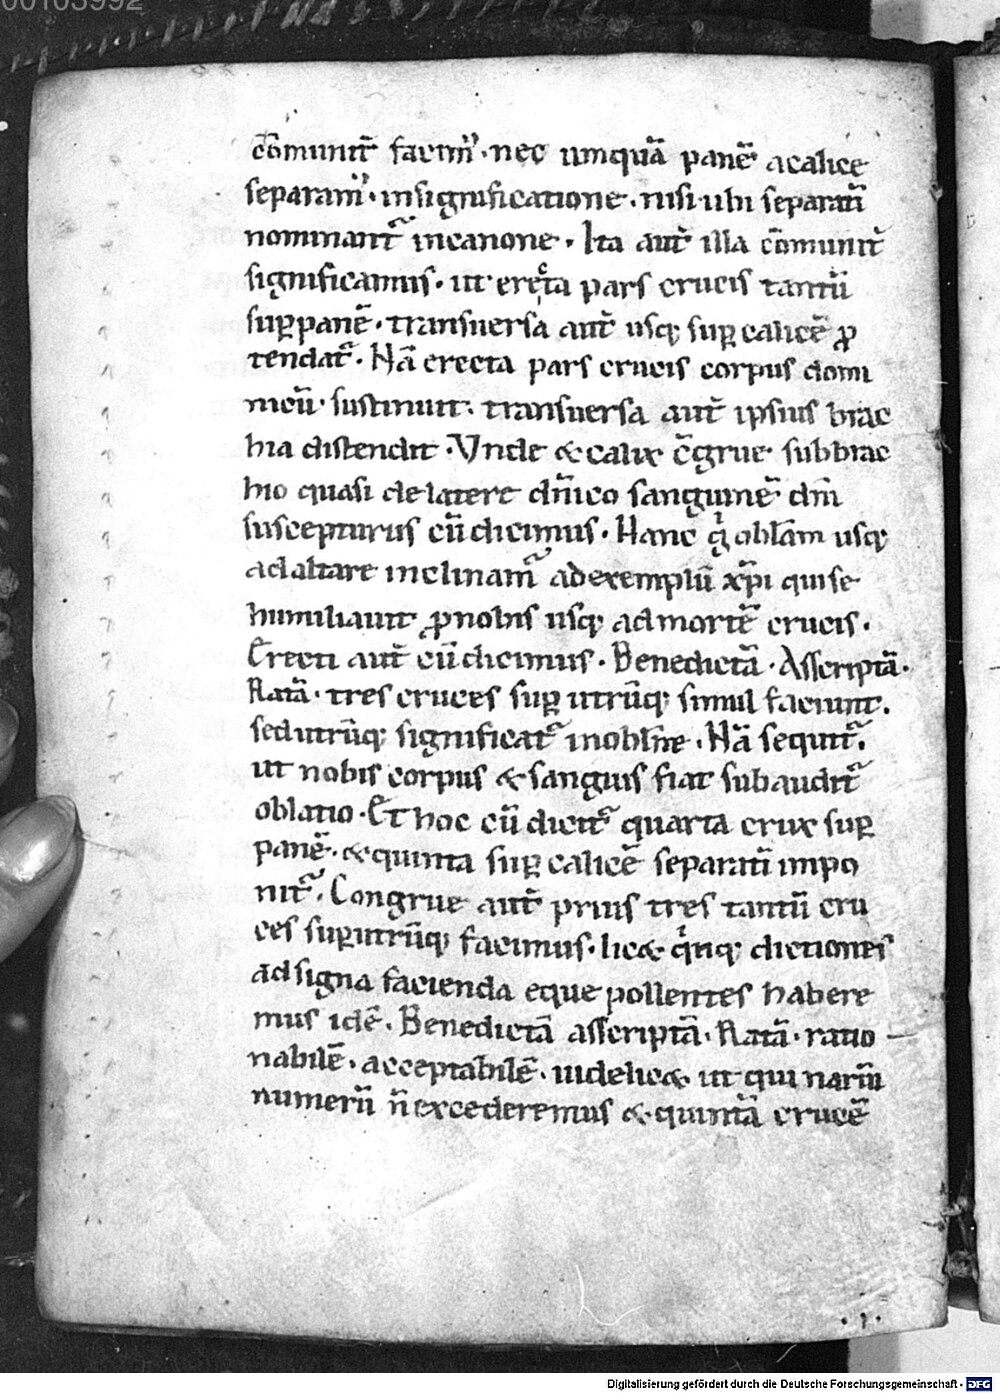 00103992
cōmunit̄ facim᷒· nec umquā panē acalice
separam᷒· insignificatione· nisi ubi separati
nominant᷑ incanone· Ita aut̄ illa cōmunit̄
significamus· ut erecta pars crucis tantū
suꝑ panē· transuersa aut̄ usq; suꝑ calicē ꝓ
tendat᷑· Nā erecta pars crucis corpus domi
nicū sustinuit· transuersa aut̄ ipsius brac
hia distendit· Vnde & calix c̄grue subbrac
hio quasi de latere dn̄ico sanguinē dn̄i
suscepturus cū dicimus· Hanc gͥ oblām usq;
ad altare inclinam᷒ ad exemplū xp̄i qui se
humiliauit ꝓ nobis usq; ad mortē crucis·
Erecti aut̄ cū dicimus· Benedictā· Asscriptā·
Ratā· tres cruces suꝑ utrūq; simul faciunt·
sed utrūq; significat᷑ in oblōne· Nā sequit᷑·
ut nobis corpus & sanguis fiat subaudit᷑
oblatio· Et hoc cū dicit᷑ quarta crux suꝑ
panē· & quinta suꝑ calicē separati impo
nit᷑· Congrue aut̄ prius tres tantū cru
ces suꝑ utrūq; facimus· lic& qͥnq; dictiones
ad signa facienda eque pollentes habere
mus idē· Benedictā asscriptā· Ratā· ratio
nabilē· acceptabilē· uidelic& ut qui nariū
numerū n̄ excederemus & quintā crucē
Digitalisierung gefördert durch die Deutsche Forschungsgemeinschaft - DFG